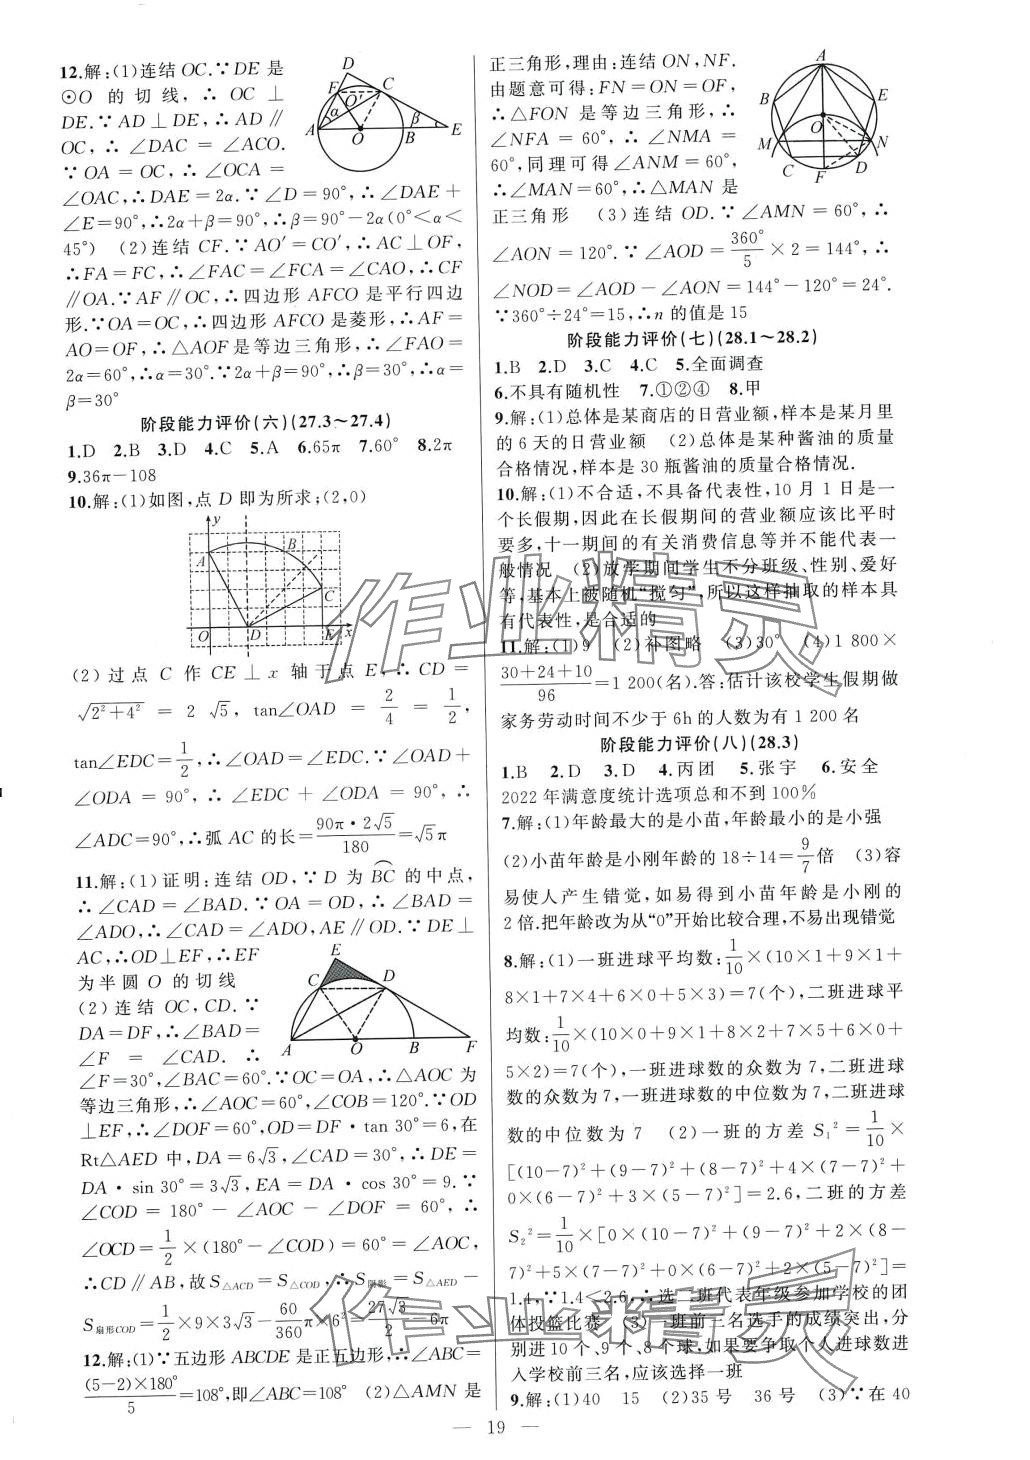 12.解:(1)连结OC.∵DE是
⊙O的切线,∴OC⊥
DE.∵AD⊥DE,∴AD∥
OC,∴∠DAC=∠ACO.
∵OA=OC,∴∠OCA=
∠OAC,∴DAE=2α.∵∠D=90°,∴∠DAE+
∠E=90°,∴2α+β=90°,∴β=90°-2α(0°<α<
45°) (2)连结CF.∵AO′=CO′,∴AC⊥OF,
∴FA=FC,∴∠FAC=∠FCA=∠CAO,∴CF
∥OA.∵AF∥OC,∴四边形AFCO是平行四边
形.∵OA=OC,∴四边形AFCO是菱形,∴AF=
AO=OF,∴△AOF是等边三角形,∴∠FAO=
2α=60°,∴α=30°.∵2α+β=90°,∴β=30°,∴α=
β=30°
阶段能力评价(六)(27.3~27.4)
1.D 2.B 3.D 4.C 5.A 6.65π 7.60° 8.2π
9.36π-108
10.解:(1)如图,点D即为所求;(2,0)
(2)过点C作CE⊥x轴于点E,∴CD=
√(2²+4²)=2√5,tan∠OAD=2/4=1/2,
tan∠EDC=1/2,∴∠OAD=∠EDC.∵∠OAD+
∠ODA=90°,∴∠EDC+∠ODA=90°,∴
∠ADC=90°,∴弧AC的长=90π·2√5/180=√5π
11.解:(1)证明:连结OD,∵D为BC的中点,
∴∠CAD=∠BAD.∵OA=OD,∴∠BAD=
∠ADO,∴∠CAD=∠ADO,AE∥OD.∵DE⊥
AC,∴OD⊥EF,∴EF
为半圆O的切线
(2)连结OC,CD.∵
DA=DF,∴∠BAD=
∠F=∠CAD.∴
∠F=30°,∠BAC=60°.∵OC=OA,∴△AOC为
等边三角形,∴∠AOC=60°,∠COB=120°.∵OD
⊥EF,∴∠DOF=60°,OD=DF·tan30°=6,在
Rt△AED中,DA=6√3,∠CAD=30°,∴DE=
DA·sin30°=3√3,EA=DA·cos30°=9.∵
∠COD=180°-∠AOC-∠DOF=60°,∴
∠OCD=1/2×(180°-∠COD)=60°=∠AOC,
∴CD∥AB,故S△ACD=S△COD,∴S阴影=S△AED-
S扇形COD=1/2×9×3√3-60/360π×6²=27√3/2-6π
12.解:(1)∵五边形ABCDE是正五边形,∴∠ABC=
(5-2)×180°/5=108°,即∠ABC=108° (2)△AMN是
正三角形,理由:连结ON,NF.
由题意可得:FN=ON=OF,
∴△FON是等边三角形,∴
∠NFA=60°,∴∠NMA=
60°,同理可得∠ANM=60°,
∴∠MAN=60°,∴△MAN是
正三角形 (3)连结OD.∵∠AMN=60°,∴
∠AON=120°.∵∠AOD=360°/5×2=144°,∴
∠NOD=∠AOD-∠AON=144°-120°=24°.
∵360°÷24°=15,∴n的值是15
阶段能力评价(七)(28.1~28.2)
1.B 2.D 3.C 4.C 5.全面调查
6.不具有随机性 7.①②④ 8.甲
9.解:(1)总体是某商店的日营业额,样本是某月里
的6天的日营业额 (2)总体是某种酱油的质量
合格情况,样本是30瓶酱油的质量合格情况.
10.解:(1)不合适,不具备代表性,10月1日是一
个长假期,因此在长假期间的营业额应该比平时
要多,十一期间的有关消费信息等并不能代表一
般情况 (2)放学期间学生不分班级、性别、爱好
等,基本上被随机“搅匀”,所以这样抽取的样本具
有代表性,是合适的
11.解:(1)9 (2)补图略 (3)30° (4)1800×
30+24+10/96=1200(名).答:估计该校学生假期做
家务劳动时间不少于6h的人数为有1200名
阶段能力评价(八)(28.3)
1.B 2.D 3.D 4.丙团 5.张宇 6.安全
2022年满意度统计选项总和不到100%
7.解:(1)年龄最大的是小苗,年龄最小的是小强
(2)小苗年龄是小刚年龄的18÷14=9/7倍 (3)容
易使人产生错觉,如易得到小苗年龄是小刚的
2倍.把年龄改为从“0”开始比较合理,不易出现错觉
8.解:(1)一班进球平均数:1/10×(10×1+9×1+
8×1+7×4+6×0+5×3)=7(个),二班进球平
均数:1/10×(10×0+9×1+8×2+7×5+6×0+
5×2)=7(个),一班进球数的众数为7,二班进球
数的众数为7,一班进球数的中位数为7,二班进球
数的中位数为7 (2)一班的方差S₁²=1/10×
[(10-7)²+(9-7)²+(8-7)²+4×(7-7)²+
0×(6-7)²+3×(5-7)²]=2.6,二班的方差
S₂²=1/10×[0×(10-7)²+(9-7)²+2×(8-
7)²+5×(7-7)²+0×(6-7)²+2×(5-7)²]=
1.4,∵1.4<2.6,∴选二班代表年级参加学校的团
体投篮比赛 (3)一班前三名选手的成绩突出,分
别进10个、9个、8个球.如果要争取个人进球数进
入学校前三名,应该选择一班
9.解:(1)40 15 (2)35号 36号 (3)∵在40
— 19 —
作业精灵
作业精灵